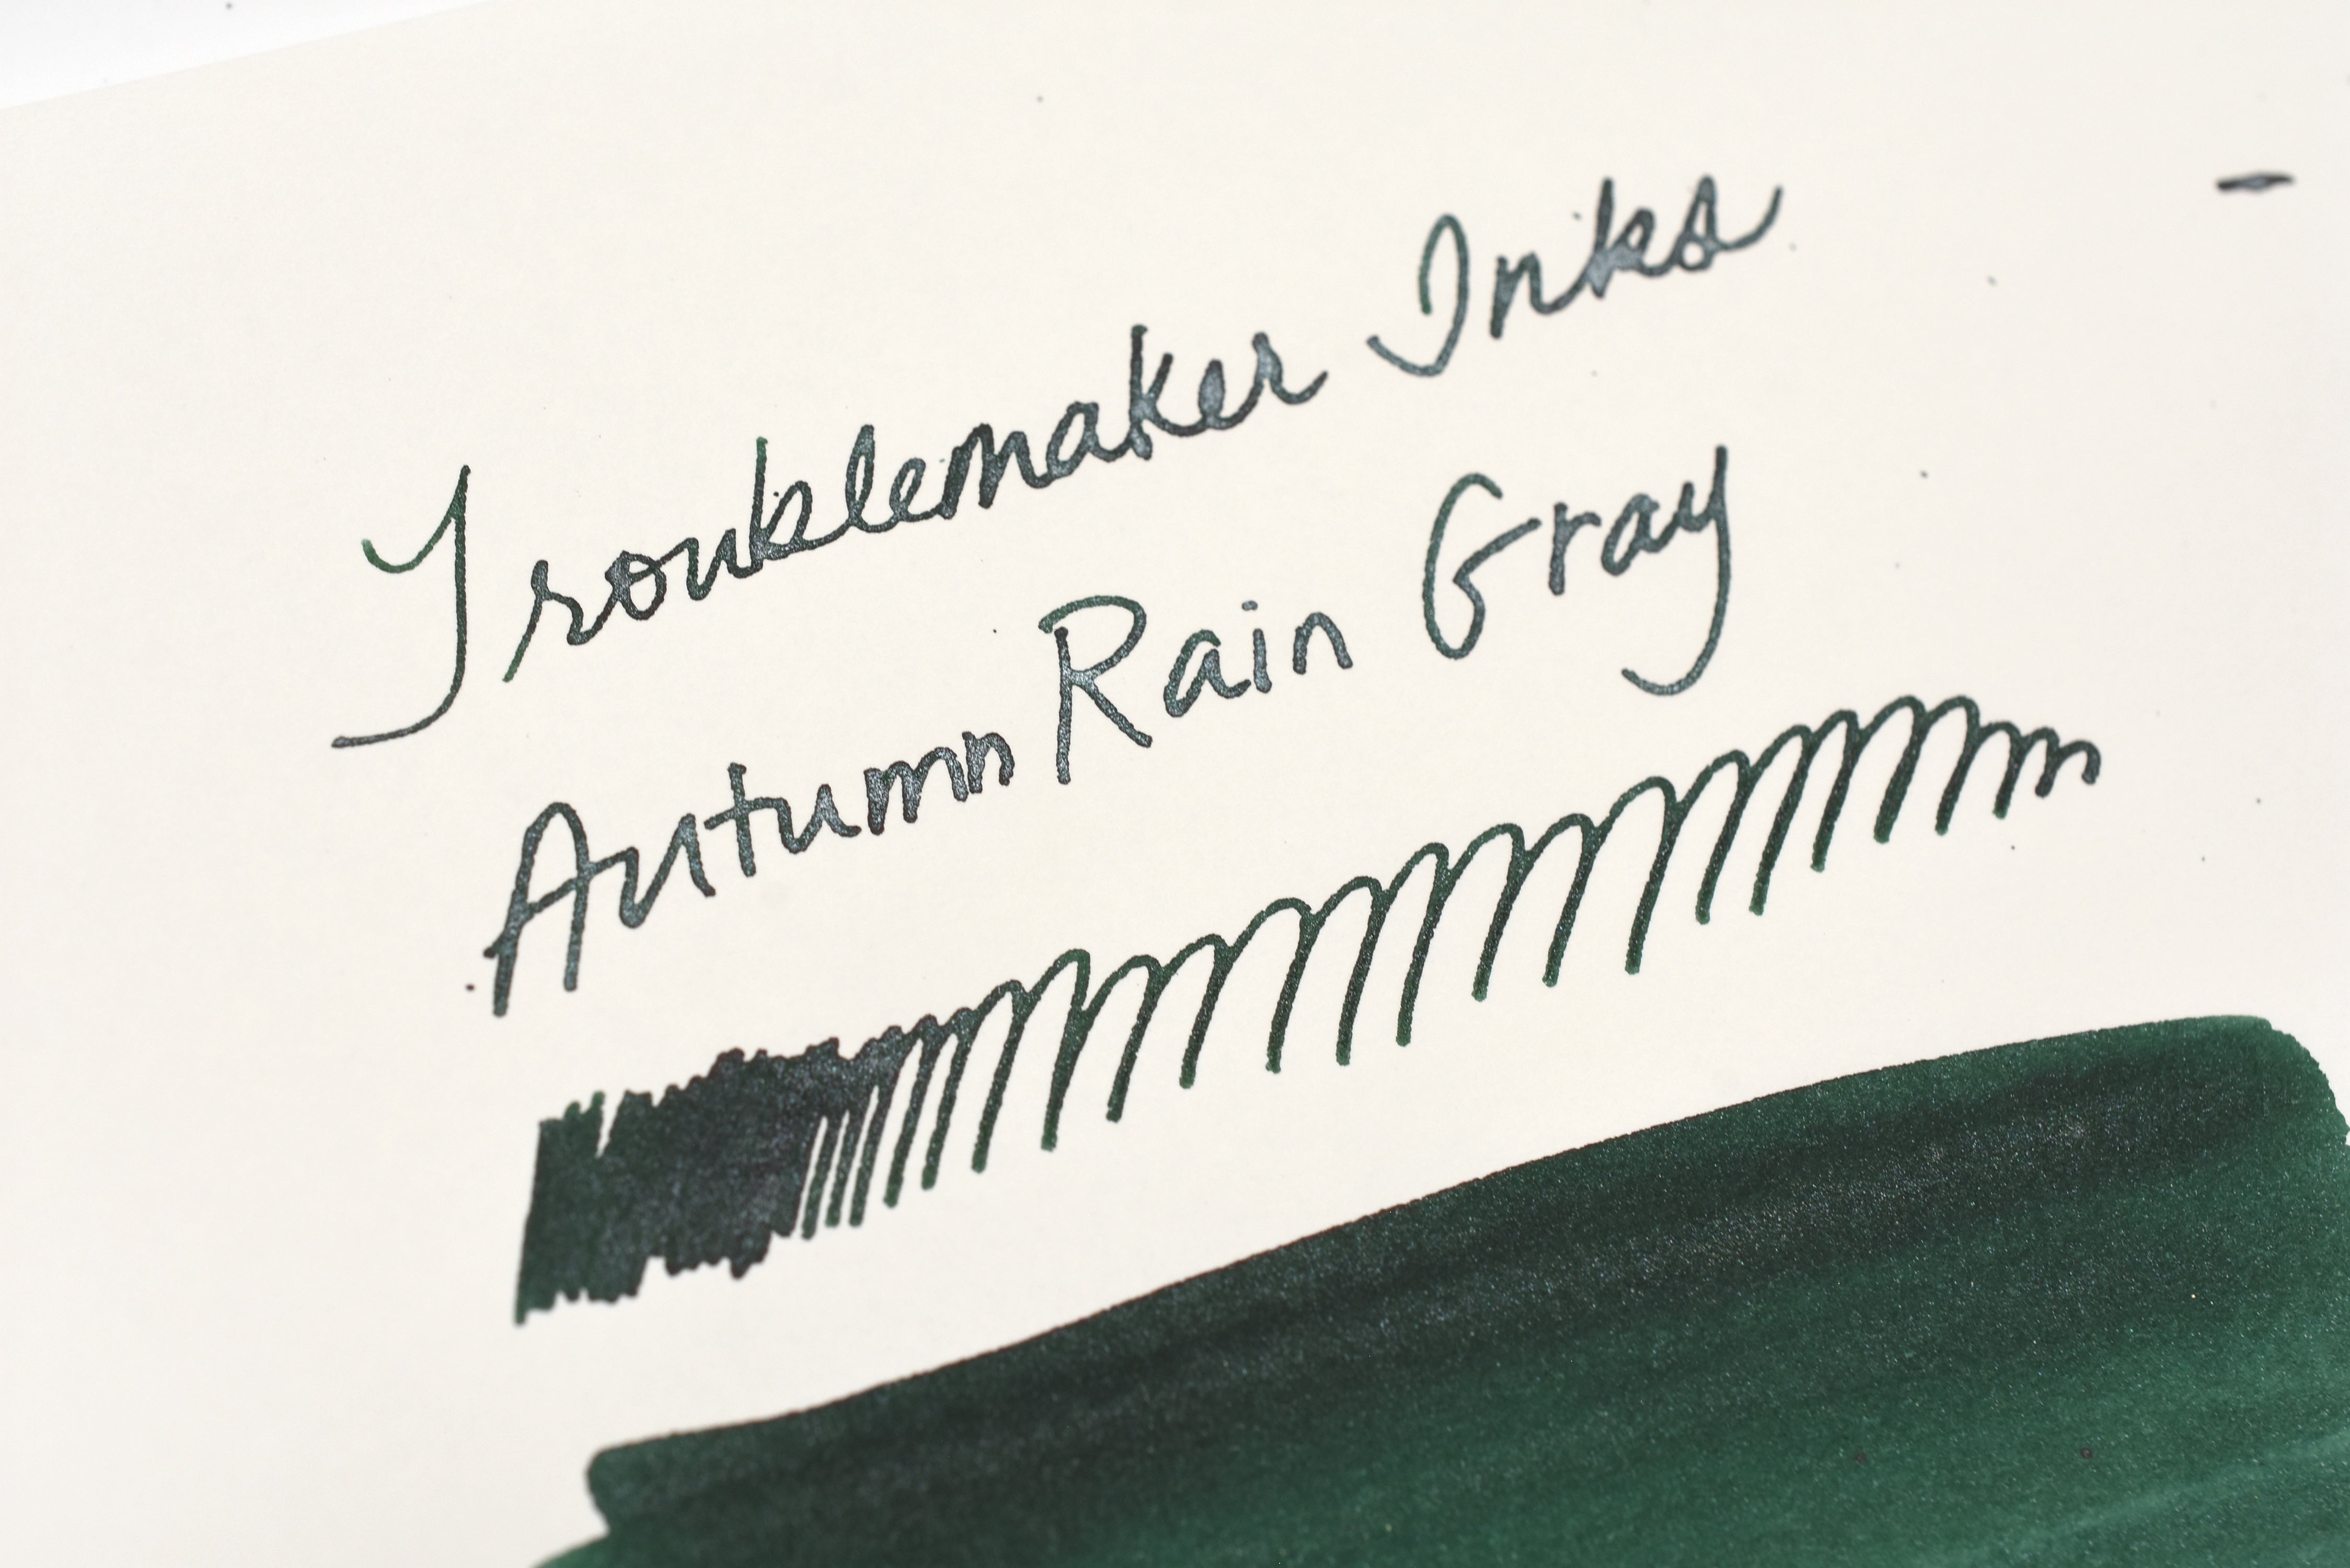 Troublemaker Inks
Autumn Rain Gray